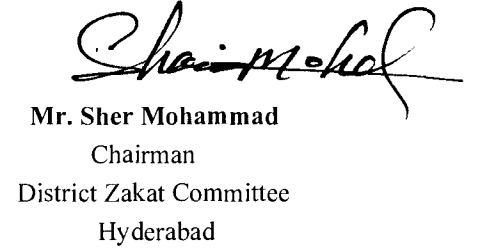 Shair Mohd
Mr. Sher Mohammad
Chairman
District Zakat Committee
Hyderabad